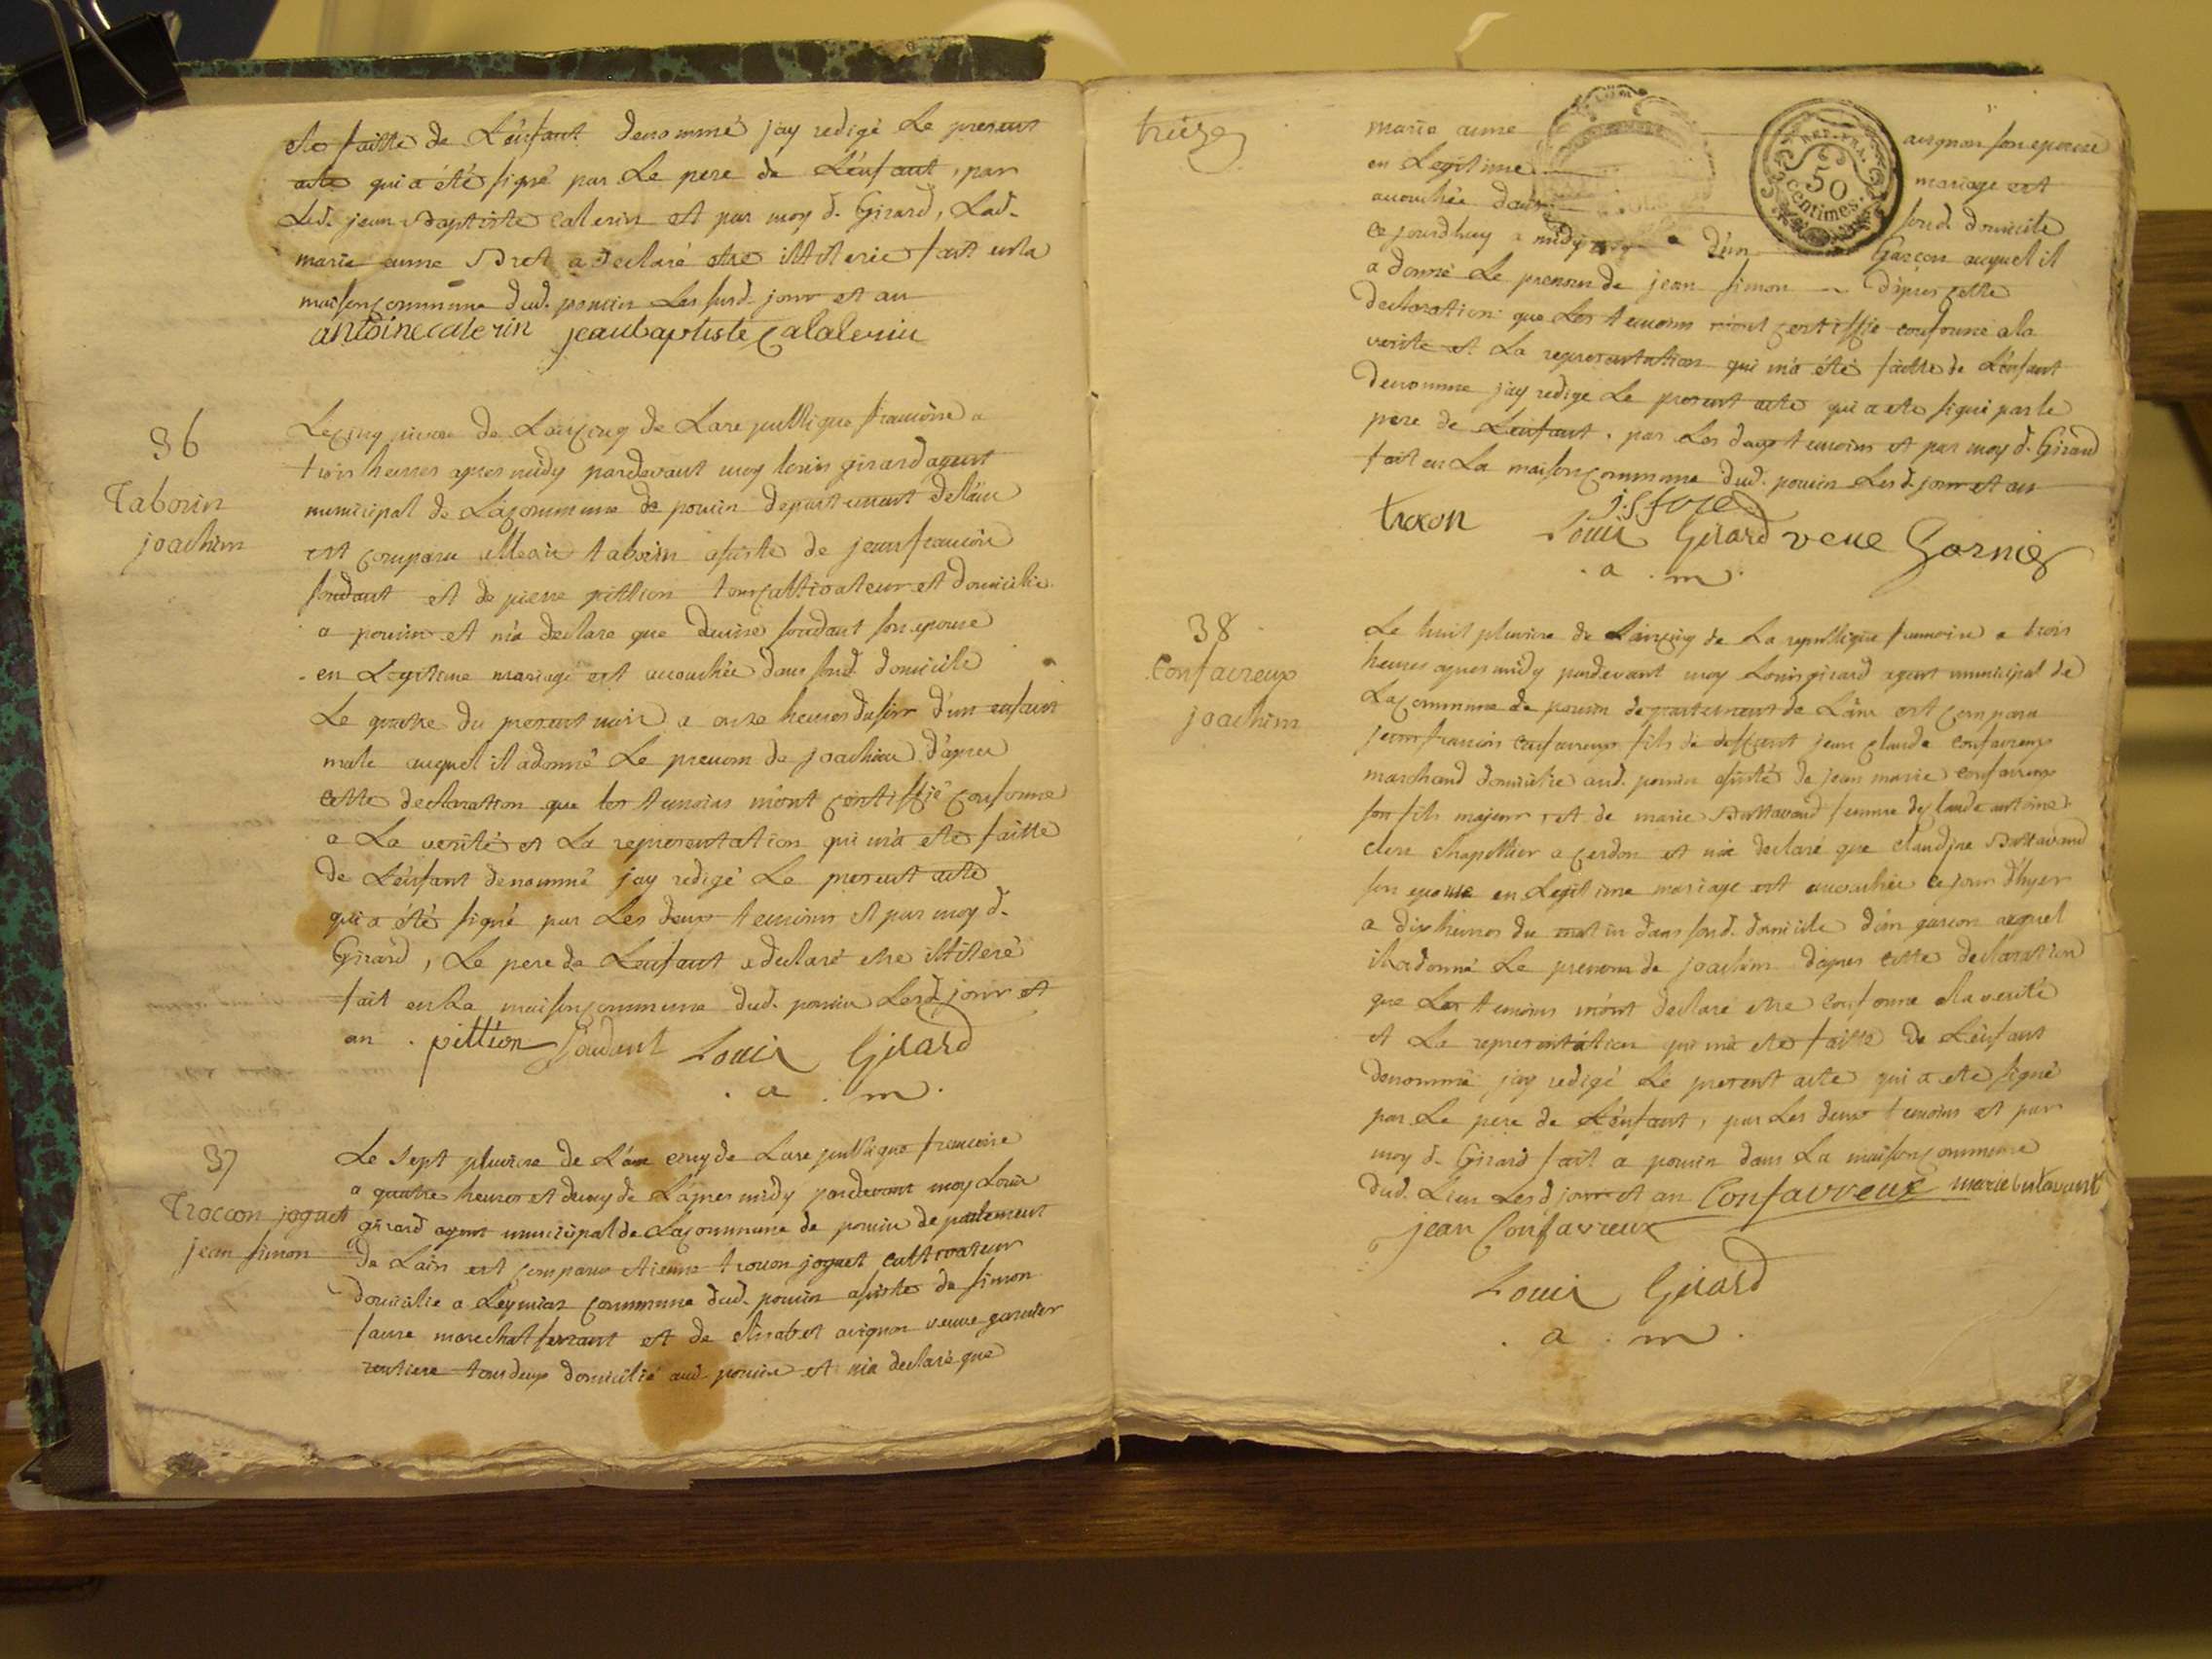 ete faitte de L'enfant denommé jay redigé Le present
acte qui a été signé par Le pere de L'enfant, par
Led. jean Baptiste caterin et par moy d. Girard, Lad.
marie anne Bret a declaré etre illiterée fait en la
maison commune dud. poncin Les susd. jour et an
antoine caterin jean baptiste Catalerin
36
Taborin
joachim
Le cinq pluviose de L'an cinq de La republique francoise a
trois heures apres midy pardevant moy louis girard agent
municipal de La commune de poncin departement de l'ain
est comparu taborin assisté de jean francois
soudant et de pierre pittion tous cultivateur et domicilié
a poncin et m'a declaré que denise soudant son epouse
en Legitime mariage est accouchée dans sond. domicile
Le quatre du present mois a onze heures du soir d'un enfant
male auquel il a donné Le prenom de joachim d'apres
cette declaration que les temoins m'ont certiffié conforme
a La verité et La representation qui m'a eté faitte
de L'enfant denommé jay redigé Le present acte
qui a été signé par Les deux temoins et par moy d.
Girard, Le pere de L'enfant a declaré etre illiteré
fait en La maison commune dud. poncin Lesd. jour et
an . pittion soudant Louis Girard
. a . m .
37
Troccon joguet
jean simon
Le sept pluviose de L'an cinq de La republique francoise
a quatre heures et demy de L'apres midy pardevant moy Louis
girard agent municipal de La commune de poncin departement
de L'ain est comparu etienne trocon joguet cultivateur
domicilié a Leymiat commune dud. poncin assisté de simon
faure marechal ferrant et de elisabet avignon veuve garnier
rentiere tous deux domicilié aud. poncin et m'a declaré que
treize
marie anne avignon son epouse
en Legitime mariage est
accouchée dans sond. domicile
ce jourdhuy a midy d'un Garçon auquel il
a donné Le prenom de jean simon d'apres cette
declaration que Les temoins m'ont certiffié conforme a la
verité et La representation qui m'a été faitte de L'enfant
denommé jay redigé Le present acte qui a ete signé par le
pere de L'enfant, par Les deux temoins et par moy d. Girard
fait en La maison commune dud. poncin Lesd. jour et an
REP. FRA.
50
centimes.
trocon Louis Girard veue Garnier
. a . m .
38
Confavreux
joachim
Le huit pluviose de L'an cinq de La republique francoise a trois
heures apres midy pardevant moy Louis girard agent municipal de
La commune de poncin departement de L'ain est comparu
jean francois confavreux fils de deffunt jean claude confavreux
marchand domicilié aud. poncin assisté de jean marie confavreux
son fils majeur, et de marie Battavand femme de claude antoine
clerc chapellier a cerdon et m'a declaré que claudine Battavand
son epouse en Legitime mariage est accouchée ce jour d'hyer
a dix heures du matin dans sond. domicile d'un garcon auquel
il a donné Le prenom de joachim d'apres cette declaration
que Les temoins m'ont declaré etre conforme a la verité
et La representation qui m'a eté faitte de L'enfant
denommé jay redigé Le present acte qui a eté signé
par Le pere de L'enfant, par Les deux temoins et par
moy d. Girard fait a poncin dans La maison commune
dud. Lieu Lesd. jour et an Confavreux marie butavant
jean Confavreux
Louis Girard
. a . m .